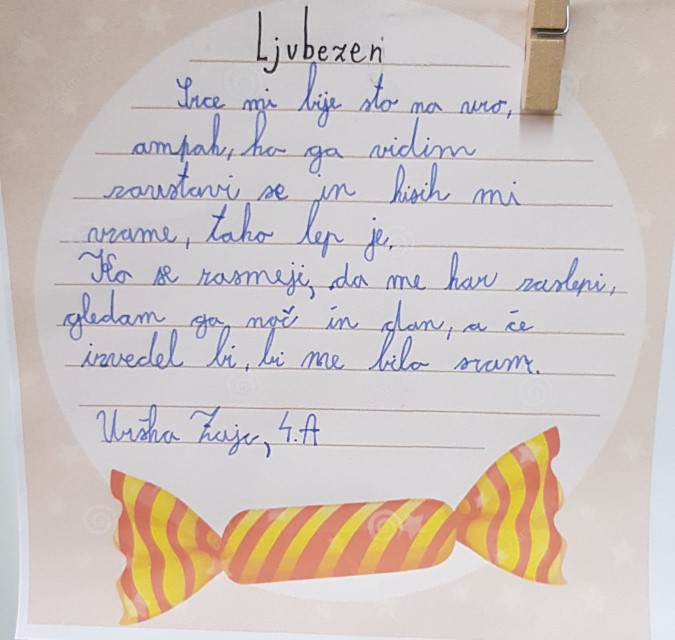 Ljubezen
Srce mi bije sto na uro,
ampak, ko ga vidim
zaustavi se in kisik mi
vzame, tako lep je.
Ko se zasmeji, da me kar zaslepi,
gledam ga noč in dan, a če
izvedel bi, bi me bilo sram.
Urška Zajc, 4.A